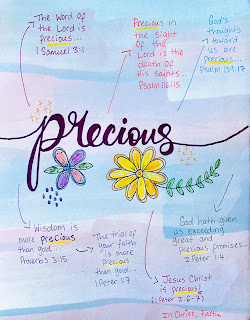 The Word of
the Lord is
precious...
1 Samuel 3:1
Precious in
the sight of
the Lord is the
death of
His saints...
Psalm 116:15
God's
thoughts
toward
us are
precious...
Psalm 139:17
precious
Wisdom is
more precious
than gold...
Proverbs 3:15
The trial of
your faith
is more
precious
than gold...
1 Peter 1:7
God hath given
us exceeding
great and
precious promises...
2 Peter 1:4
Jesus Christ
is precious!
(1 Peter 2:6-7)
In Christ, Faith